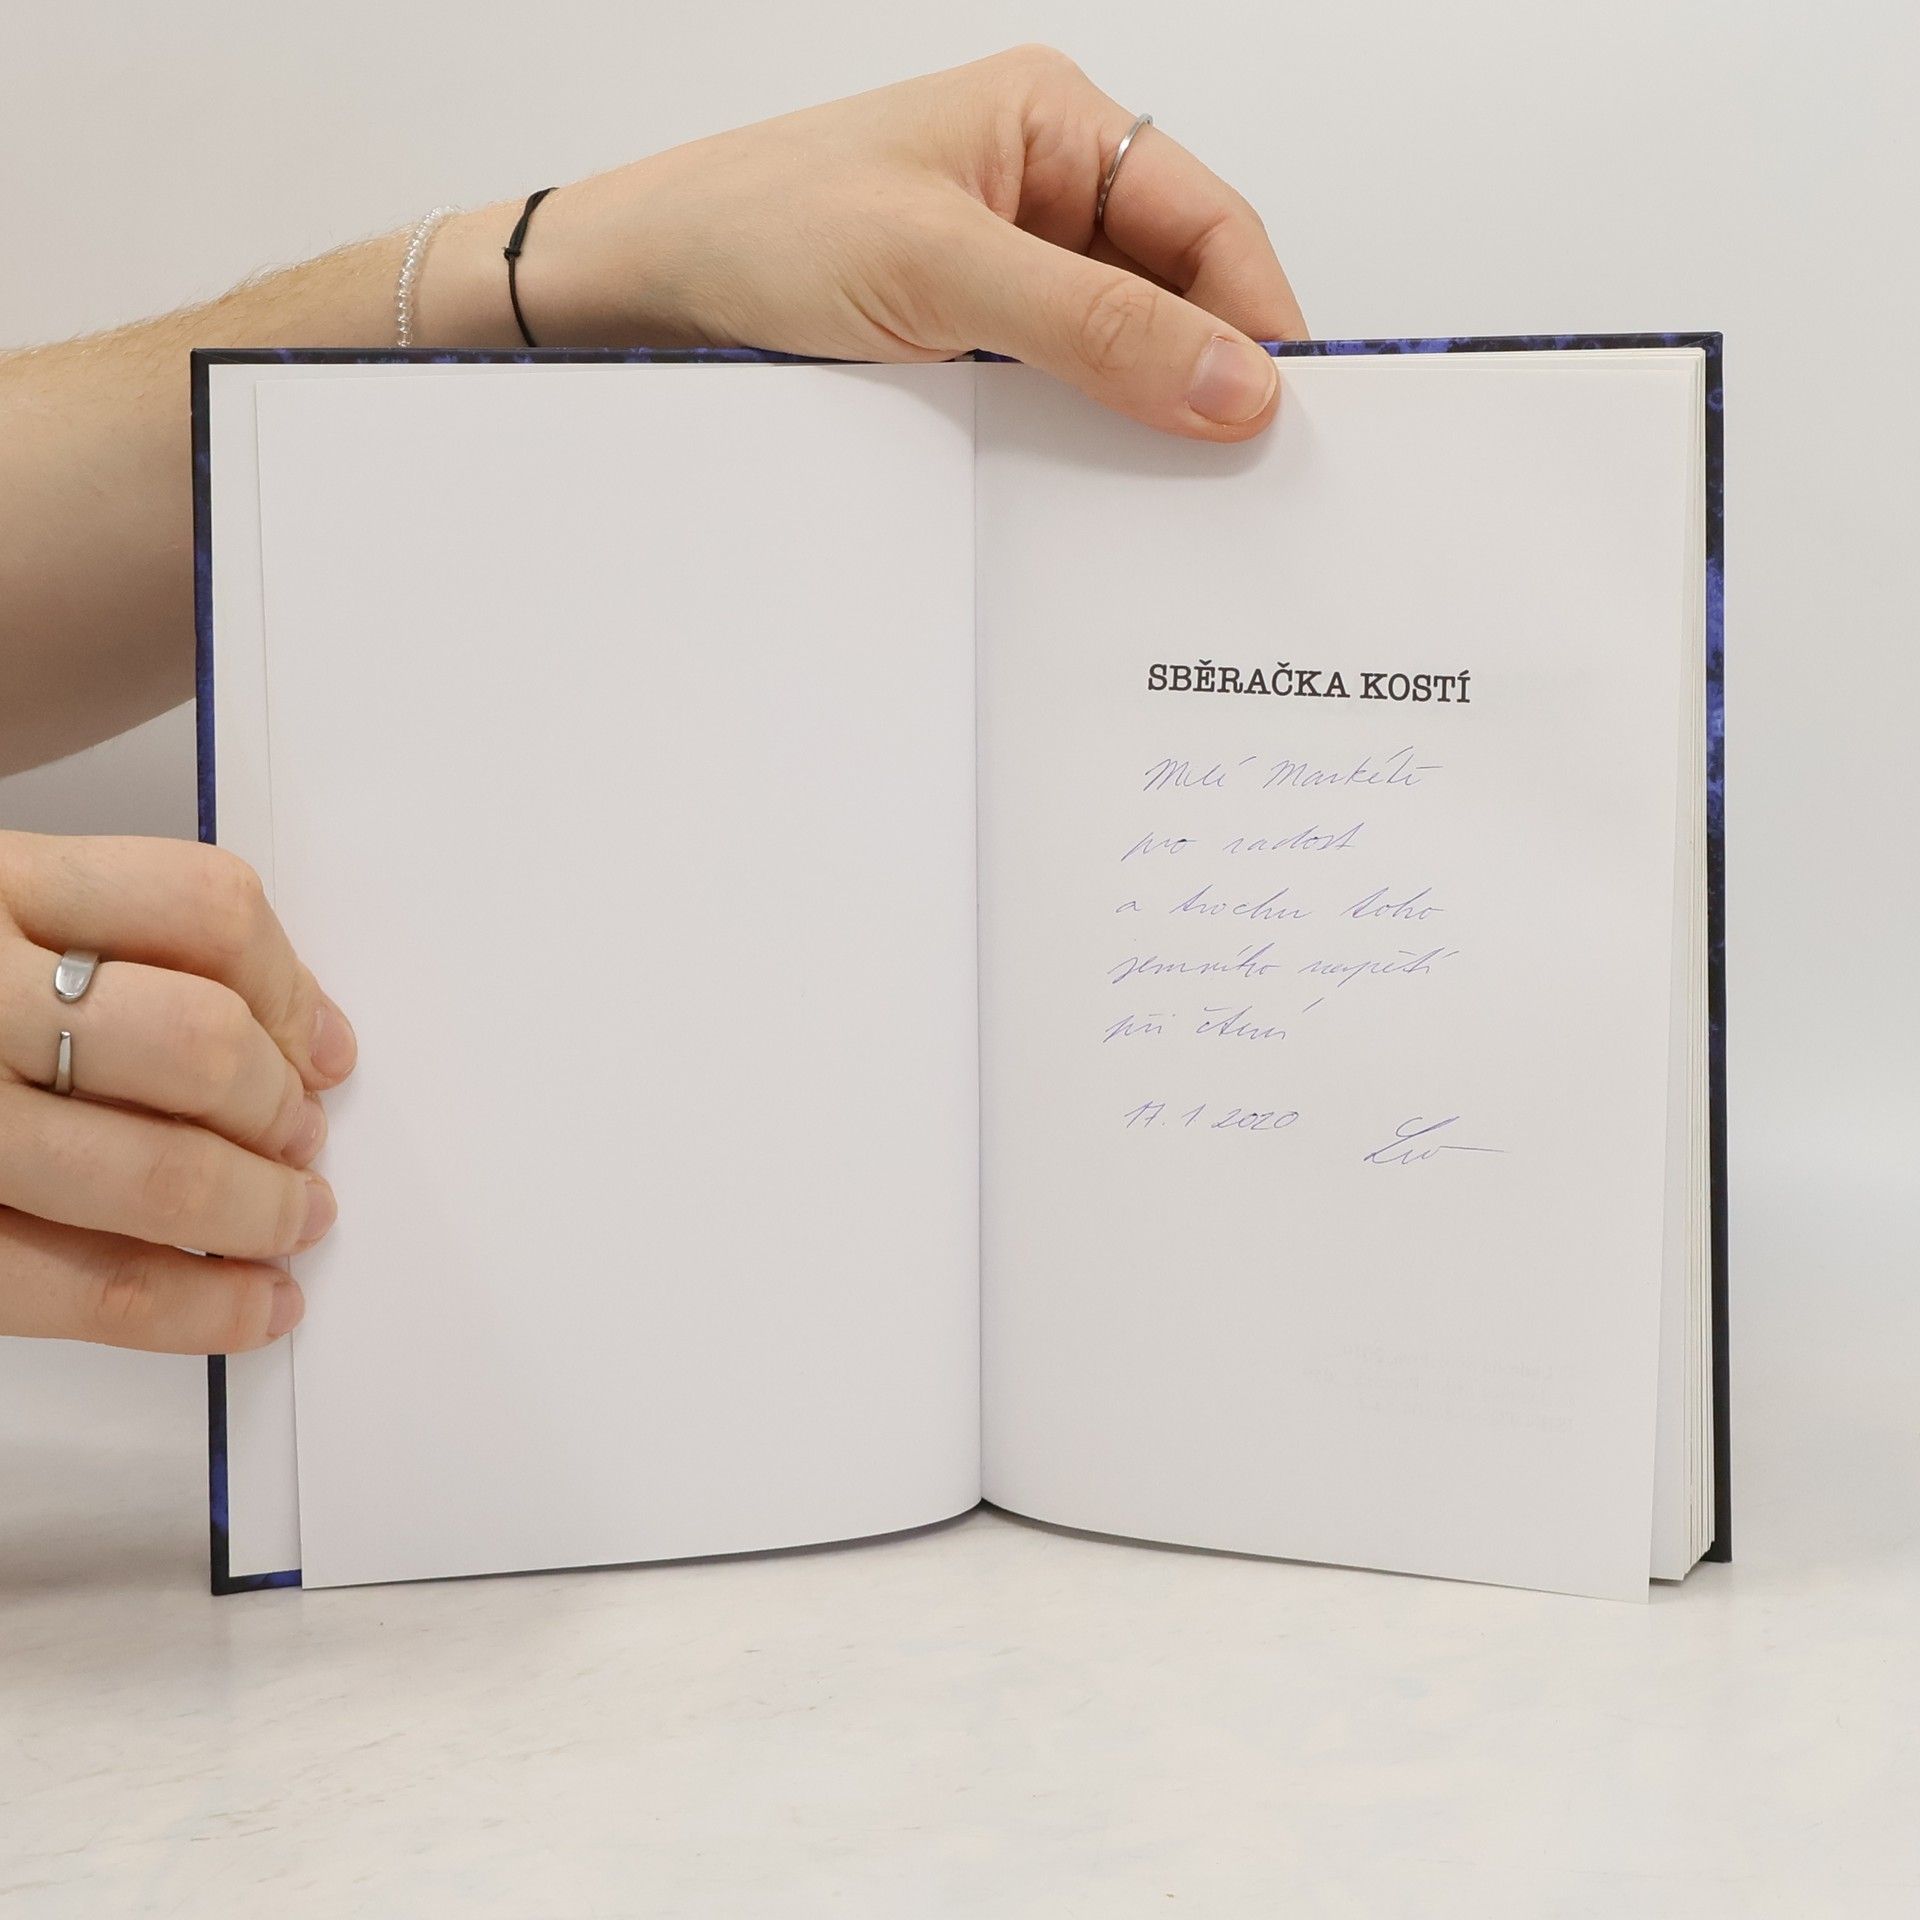 SBĚRAČKA KOSTÍ
Milé Markétě
pro radost
a trochu toho
jemného napětí
při čtení
17. 1 2020